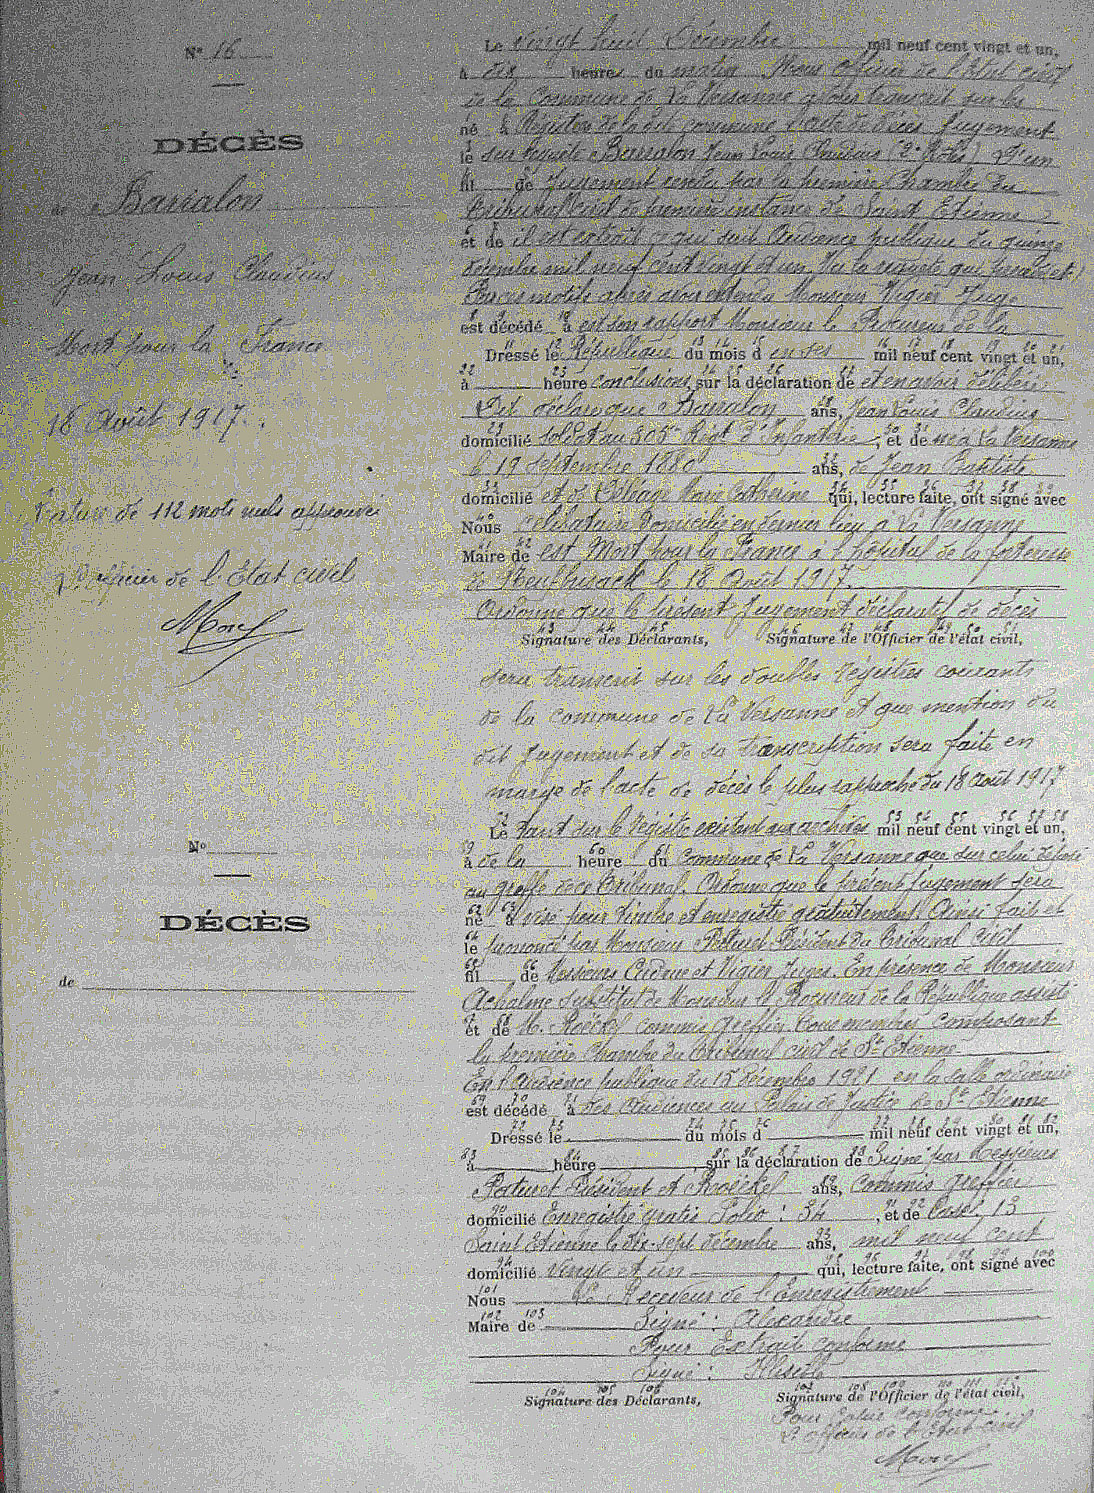 N° 16
DÉCÈS
de Barralon
Jean Louis Claudius
Mort pour la France
18 Août 1917
Rature de 112 mots nuls approuvée
L'officier de l'État civil
Morel
Le vingt huit Décembre mil neuf cent vingt et un,
à dix heures du matin Nous officier de l'État civil
de la Commune de La Versanne avons transcrit sur les
né à Registres de la dite commune l'acte de décès Jugement
le sur requête Barralon Jean Louis Claudius (2 Rôles) D'un
fil de Jugement rendu par la première Chambre du
Tribunal civil de première instance de Saint Etienne
et de il est extrait ce qui suit Audience publique du quinze
décembre mil neuf cent vingt et un. Vu la requête qui précède et
Par ces motifs après avoir entendu Monsieur Vigier Juge
est décédé à est son rapport Monsieur le Procureur de la
Dressé le République du mois d en ses mil neuf cent vingt et un,
à heure conclusions, sur la déclaration de et en avoir délibéré
Dit déclare que Barralon ans, Jean Louis Claudius
domicilié soldat au 305e Régt d'Infanterie, et de né à La Versanne
le 19 septembre 1880 ans, de Jean Baptiste
domicilié et de Marie Catherine qui, lecture faite, ont signé avec
Nous célibataire Domicilié en dernier lieu à La Versanne
Maire de est Mort pour la France à l'hôpital de la forteresse
de le 18 Août 1917.
Ordonne que le présent Jugement déclaratif de décès
Signature des Déclarants, Signature de l'Officier de l'état civil,
sera transcrit sur les doubles registres courants
de la commune de La Versanne et que mention du
dit Jugement et de sa transcription sera faite en
marge de l'acte de décès le plus rapproché du 18 août 1917
Le tant sur le registre existant aux archives mil neuf cent vingt et un,
à de la heure du commune de La Versanne que sur celui déposé
au greffe de ce Tribunal. Ordonne que le présent jugement sera
né à visé pour timbre et enregistré gratuitement. Ainsi fait et
le prononcé par Monsieur Paturet Président du Tribunal civil
fil de Messieurs et Vigier Juges. En présence de Monsieur
Achalme Substitut de Monsieur le Procureur de la République assisté
et de M. Roëckel commis greffier tous membres composant
la première Chambre du Tribunal civil de St Etienne
En l'audience publique du 15 décembre 1921 en la salle ordinaire
est décédé à des audiences au Palais de Justice de St Etienne
Dressé le du mois d mil neuf cent vingt et un,
à heure, sur la déclaration de Signé par Messieurs
Paturet Président et Roëckel ans, commis greffier
domicilié Enregistré gratis Folio : 34, et de Case, 13
Saint Etienne le dix-sept décembre ans, mil neuf cent
domicilié vingt et un qui, lecture faite, ont signé avec
Nous Le Receveur de l'Enregistrement
Maire de Signé : Alexandre
Pour Extrait conforme
Signé :
Signature des Déclarants, Signature de l'Officier de l'état civil,
Pour copie conforme
L'officier de l'État civil
Morel
N°
DÉCÈS
de